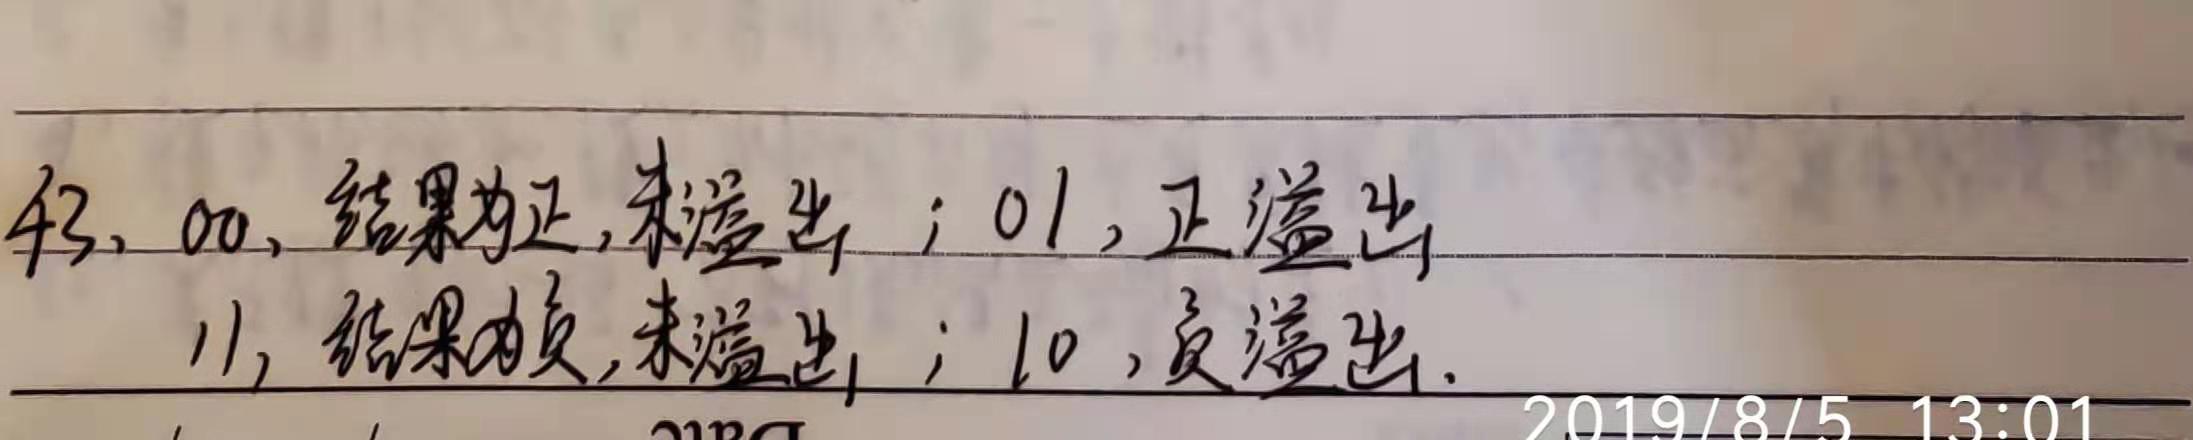 43、00、结果为正,未溢出;01,正溢出
11,结果为负,未溢出;10,负溢出.
Date
2019/8/5 13:01